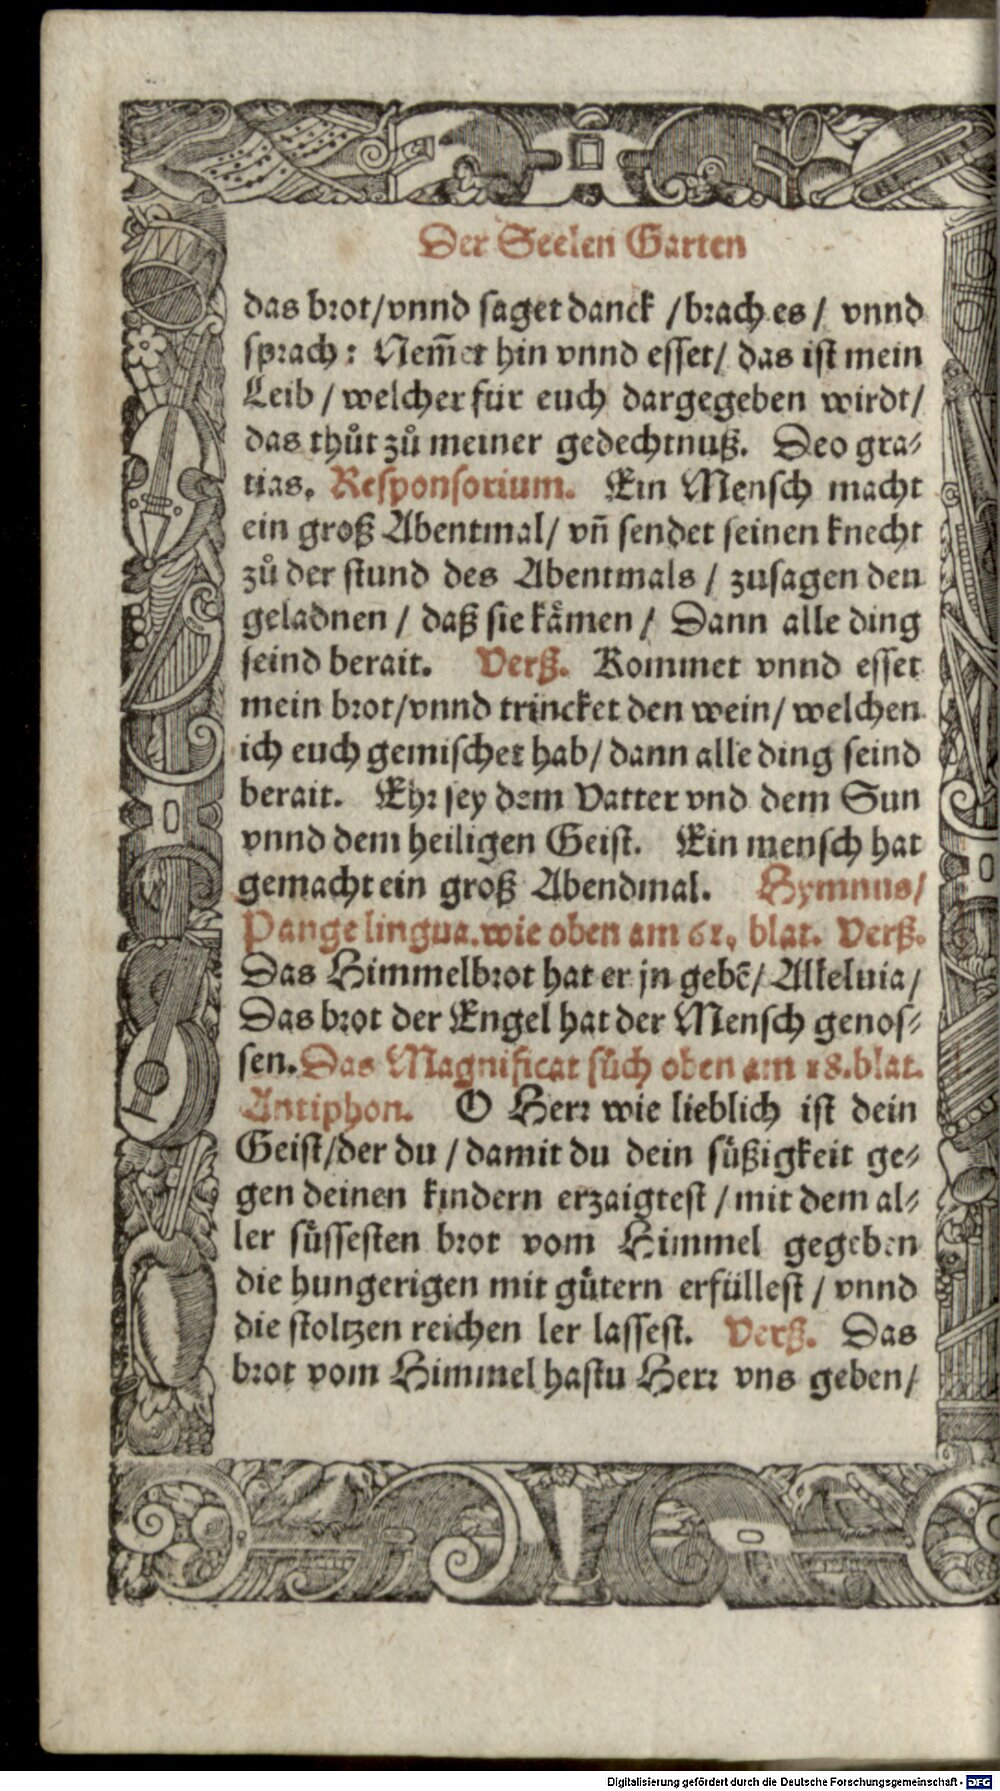 Der Seelen Garten
das brot/vnnd saget danck /brach es/ vnnd
sprach: Nem̄et hin vnnd esset/ das ist mein
Leib / welcher für euch dargegeben wirdt/
das thůt zů meiner gedechtnuß. Deo gra-
tias. Responsorium. Ein Mensch macht
ein groß Abentmal/ vn̄ sendet seinen knecht
zů der stund des Abentmals / zusagen den
geladnen / daß sie kåmen / Dann alle ding
seind berait. Verß. Kommet vnnd esset
mein brot/vnnd trincket den wein/ welchen
ich euch gemischet hab/ dann alle ding seind
berait. Ehr sey dem Vatter vnd dem Sun
vnnd dem heiligen Geist. Ein mensch hat
gemacht ein groß Abendmal. Hymnus/
Pange lingua. wie oben am 61. blat. Verß.
Das Himmelbrot hat er jn gebē/ Alleluia/
Das brot der Engel hat der Mensch genos-
sen. Das Magnificat sůch oben am 18. blat.
Antiphon. O Herr wie lieblich ist dein
Geist/der du / damit du dein süßigkeit ge-
gen deinen kindern erzaigtest / mit dem al-
ler süssesten brot vom Himmel gegeben
die hungerigen mit gütern erfüllest / vnnd
die stoltzen reichen ler lassest. Verß. Das
brot vom Himmel hastu Herr vns geben/
Digitalisierung gefördert durch die Deutsche Forschungsgemeinschaft - DFG